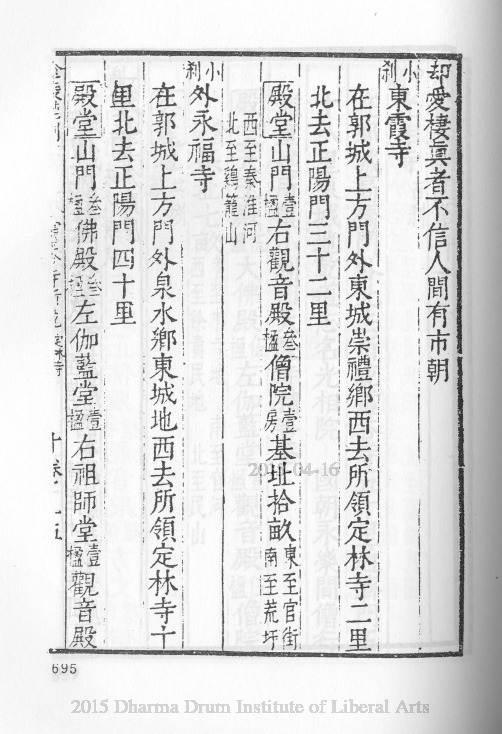 却愛棲眞者不信人間有市朝
小刹
東霞寺
在郭城上方門外東城崇禮鄉西去所領定林寺二里
北去正陽門三十二里
殿堂山門壹楹右觀音殿叁楹僧院壹房基址拾畝東至官街南至荒圩
西至秦淮河北至鷄籠山
小刹
外永福寺
在郭城上方門外泉水鄉東城地西去所領定林寺十
里北去正陽門四十里
殿堂山門叁楹佛殿叁楹左伽藍堂壹楹右祖師堂壹楹觀音殿
695
2015 Dharma Drum Institute of Liberal Arts